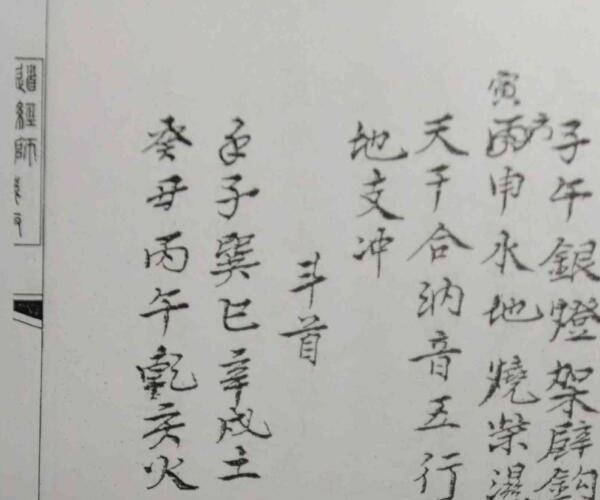 子午銀燈架壁鈎
寅申水地燒柴濕
天干合納音五行
地支冲
斗首
壬子巽巳辛戌土
癸丑丙午乾亥火
道經師